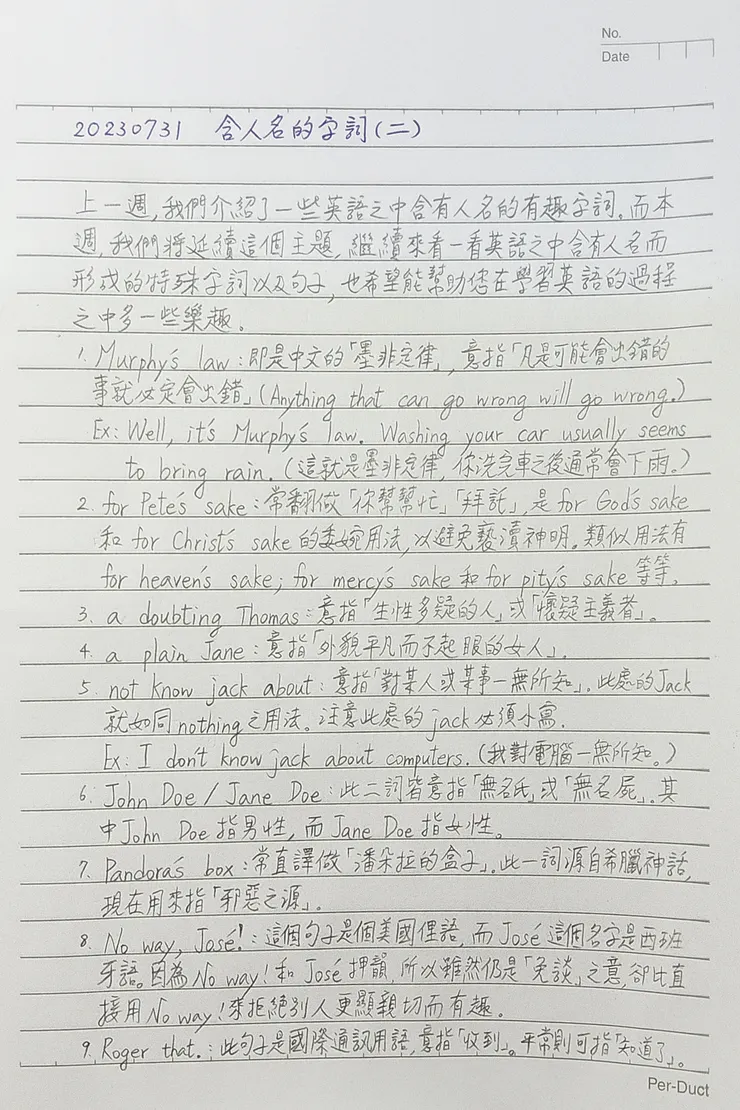 No.
Date
20230731 含人名的字詞(二)
上一週,我們介紹了一些英語之中含有人名的有趣字詞。而本
週,我們將延續這個主題,繼續來看一看英語之中含有人名而
形成的特殊字詞以及句子,也希望能幫助您在學習英語的過程
之中多一些樂趣。
1. Murphy's law:即是中文的「墨非定律」,意指「凡是可能會出錯的
事就必定會出錯」(Anything that can go wrong will go wrong.)
Ex: Well, it's Murphy's law. Washing your car usually seems
to bring rain. (這就是墨非定律,你洗完車之後通常會下雨。)
2. for Pete's sake:常翻做「你幫幫忙」「拜託」,是for God's sake
和 for Christ's sake 的委婉用法,以避免褻瀆神明。類似用法有
for heaven's sake; for mercy's sake 和 for pity's sake 等等。
3. a doubting Thomas:意指「生性多疑的人」或「懷疑主義者」。
4. a plain Jane:意指「外貌平凡而不起眼的女人」。
5. not know jack about:意指「對某人或某事一無所知」。此處的Jack
就如同nothing之用法。注意此處的jack必須小寫.
Ex: I don't know jack about computers. (我對電腦一無所知。)
6. John Doe / Jane Doe:此二詞皆意指「無名氏」或「無名屍」。其
中John Doe 指男性,而Jane Doe 指女性。
7. Pandora's box:常直譯做「潘朵拉的盒子」.此一詞源自希臘神話,
現在用來指「邪惡之源」。
8. No way, José!:這個句子是個美國俚語,而José 這個名字是西班
牙語。因為No way!和 José 押韻,所以雖然仍是「免談」之意,卻比直
接用No way!來拒絕別人更顯親切而有趣。
9. Roger that.:此句子是國際通訊用語,意指「收到」。平常則可指「知道了」。
Per-Duct